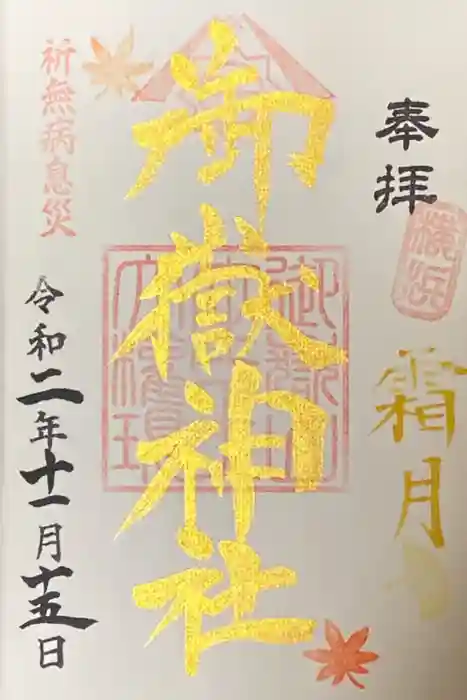 奉拝
横浜
霜月
御嶽神社
祈無病息災
令和二年十一月十五日